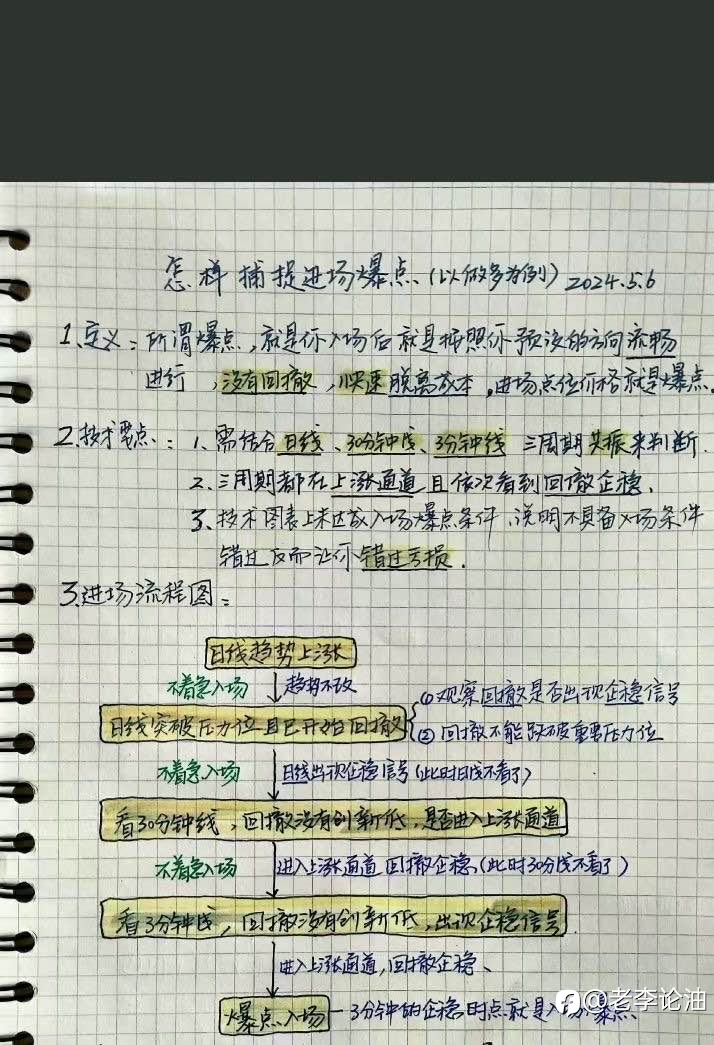 怎样捕捉进场爆点(以做多为例) 2024.5.6
1.定义:所谓爆点,就是你入场后就是按照你预设的方向流畅
进行,没有回撤,快速脱离成本,进场点位价格就是爆点.
2.技术要点:1.需结合日线、30分钟线、3分钟线三周期共振来判断.
2.三周期都在上涨通道且依次看到回撤企稳.
3.技术图表上未达成入场爆点条件,说明不具备入场条件
错过反而让你错过亏损.
3.进场流程图:
日线趋势上涨
不着急入场 趋势不改
日线突破压力位且已开始回撤
①观察回撤是否出现企稳信号
②回撤不能跌破重要压力位
不着急入场 日线出现企稳信号(此时日线不看了)
看30分钟线,回撤没有创新低,是否进入上涨通道
不着急入场 进入上涨通道回撤企稳(此时30分线不看了)
看3分钟线,回撤没有创新低,出现企稳信号
进入上涨通道,回撤企稳、
爆点入场—3分钟的企稳时点就是入场爆点.
@老李论油